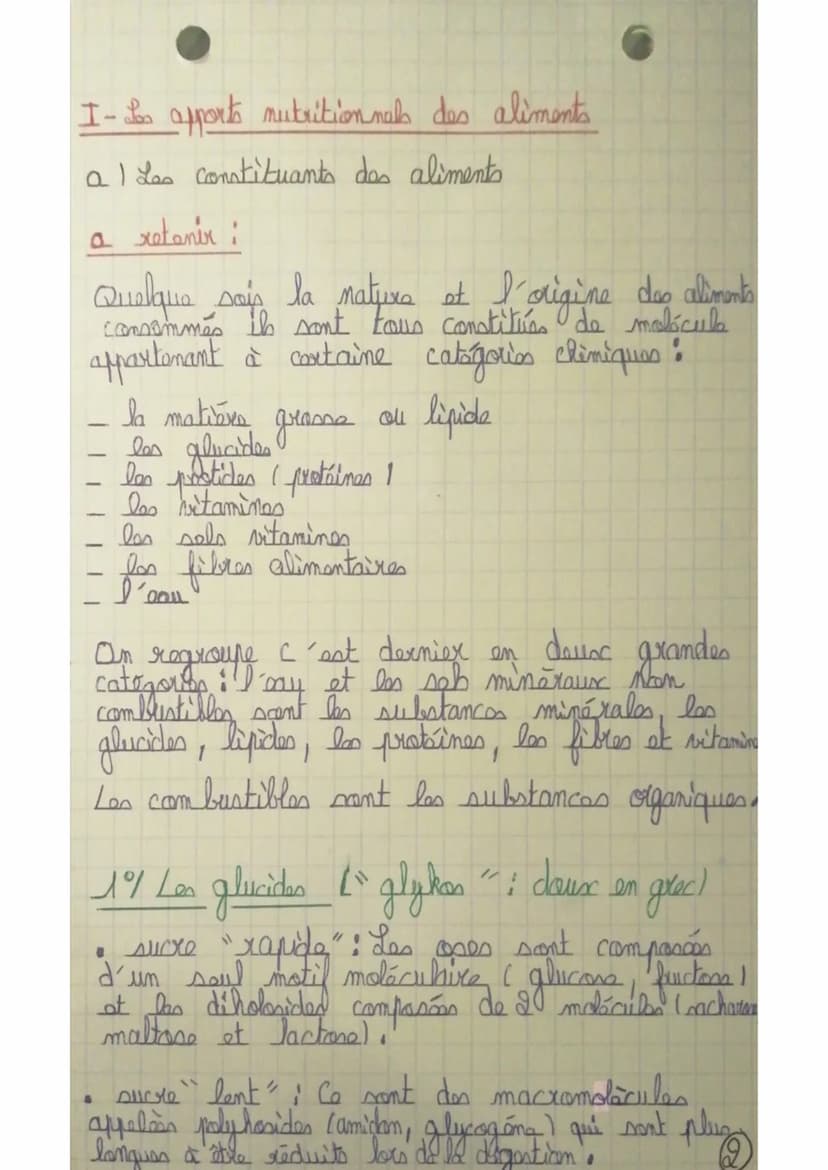 I- Les apports nutritionnels des aliments
a) Les constituants des aliments
a retenir :
Quelque sois la nature et l'origine des aliments
consommés ils sont tous constitués de molécule
appartenant à certaine catégories chimiques :
- la matière grasse ou lipide
- les glucides
- les protides (protéines)
- les vitamines
- les sels vitamines
- les fibres alimentaires
- l'eau
On regroupe c'est dernier en deux grandes
catégories : l'eau et les sels minéraux Non
combustibles sont les substances minérales, les
glucides, lipides, les protéines, les fibres et vitamine
Les combustibles sont les substances organiques.
1°/ Les glucides ("glykos" : doux en grec)
• sucre "rapide" : Les oses sont composés
d'un seul motif moléculaire (glucose, fructose)
et les diholosides composés de 2 molécules (saccharose
maltose et lactose).
• sucre "lent" : Ce sont des macromolécules
appelées polyhosides (amidon, glycogène) qui sont plus
longues à être réduits lors de la digestion.
2